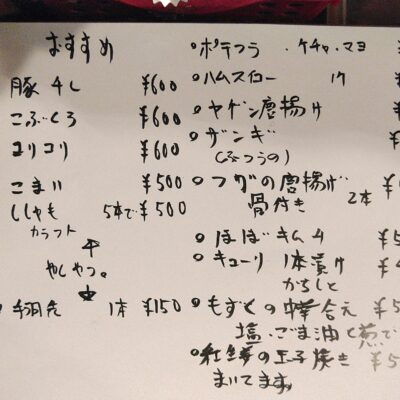 おすすめ
豚タン ¥600
こぶくろ ¥600
コリコリ ¥600
こまい ¥500
ししゃも 5本で ¥500
カラフト
やしやつ。
手羽先 1本 ¥150
ポテフラ ・ケチャ・マヨ ¥
ハムスロー ¥
ヤゲン唐揚げ ¥
ザンギ ¥
(ふつうの)
フグの唐揚げ 2本 ¥
骨付き
ほぼキムム ¥5
キューリ 1本漬け ¥
からしと
もずくの中華合え ¥5
塩、ごま油と煎で
の玉子焼き ¥5
まいてます